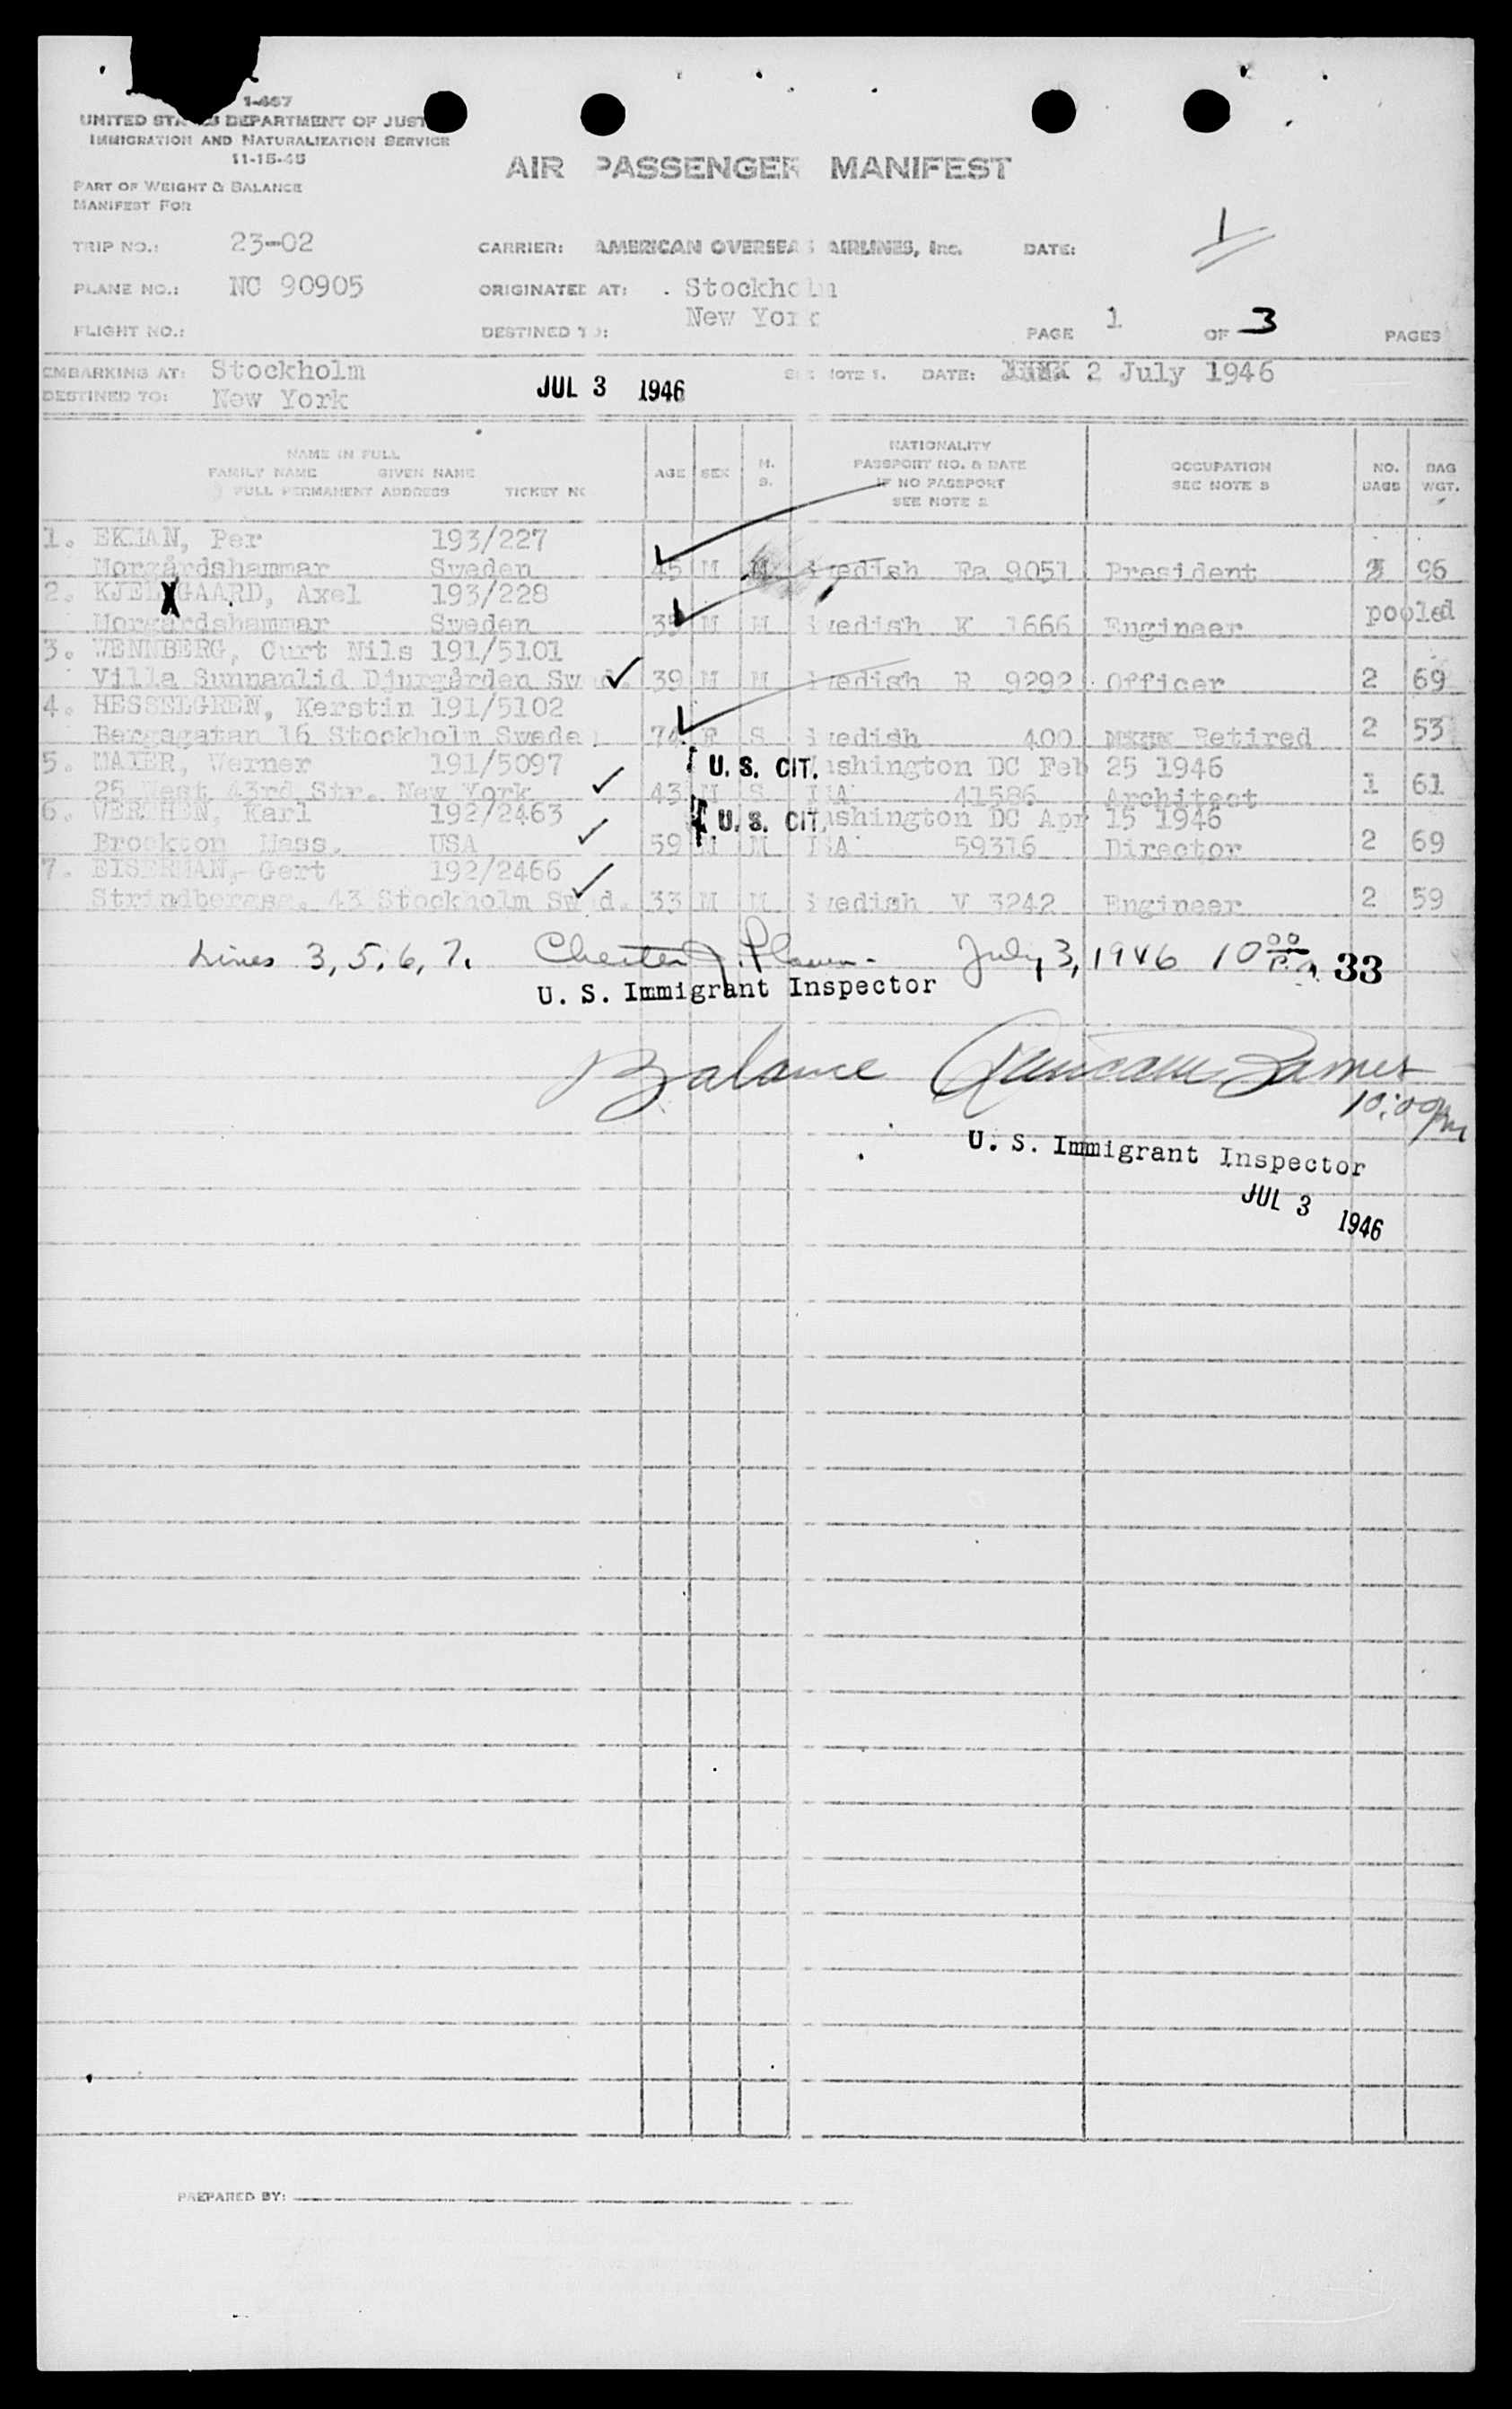 1-467
UNITED STATES DEPARTMENT OF JUST
IMMIGRATION AND NATURALIZATION SERVICE
11-15-45
PART OF WEIGHT & BALANCE
MANIFEST FOR
AIR PASSENGER MANIFEST
1
TRIP NO.: 23-02 CARRIER: AMERICAN OVERSEAS AIRLINES, Inc. DATE:
PLANE NO.: NC 90905 ORIGINATED AT: Stockholm
FLIGHT NO.: DESTINED TO: New York PAGE 1 OF 3 PAGES
EMBARKING AT: Stockholm SEE NOTE 1. DATE: 2 July 1946
DESTINED TO: New York JUL 3 1946
NAME IN FULL
FAMILY NAME GIVEN NAME
FULL PERMANENT ADDRESS TICKET NO
AGE SEX M. S.
NATIONALITY
PASSPORT NO. & DATE
IF NO PASSPORT
SEE NOTE 2
OCCUPATION
SEE NOTE 3
NO. BAGS
BAG WGT.
1. EKMAN, Per 193/227
Morgårdshammar Sweden 45 M M Swedish Fa 9051 President 3 96
2. KJELLGAARD, Axel 193/228
Morgårdshammar Sweden 35 M M Swedish K 1666 Engineer pooled
3. WENNBERG, Curt Nils 191/5101
Villa Sunnanlid Djurgården Swed. 39 M M Swedish R 9292 Officer 2 69
4. HESSELGREN, Kerstin 191/5102
Bergsgatan 16 Stockholm Sweden 74 F S Swedish 400 Retired 2 53
5. MAIER, Werner 191/5097 U. S. CIT. Washington DC Feb 25 1946
25 West 43rd Str. New York 43 M S USA 41586 Architect 1 61
6. WERTHEN, Karl 192/2463 U. S. CIT. Washington DC Apr 15 1946
Brockton Mass. USA 59 M M USA 59316 Director 2 69
7. EISERMAN, Gert 192/2466
Strindbergsg. 43 Stockholm Swed. 33 M M Swedish V 3242 Engineer 2 59
Lines 3, 5, 6, 7. Chester J. July 3, 1946 10 00 33
U. S. Immigrant Inspector
Balance Duncan James
10:00 pm
U. S. Immigrant Inspector
JUL 3 1946
PREPARED BY: